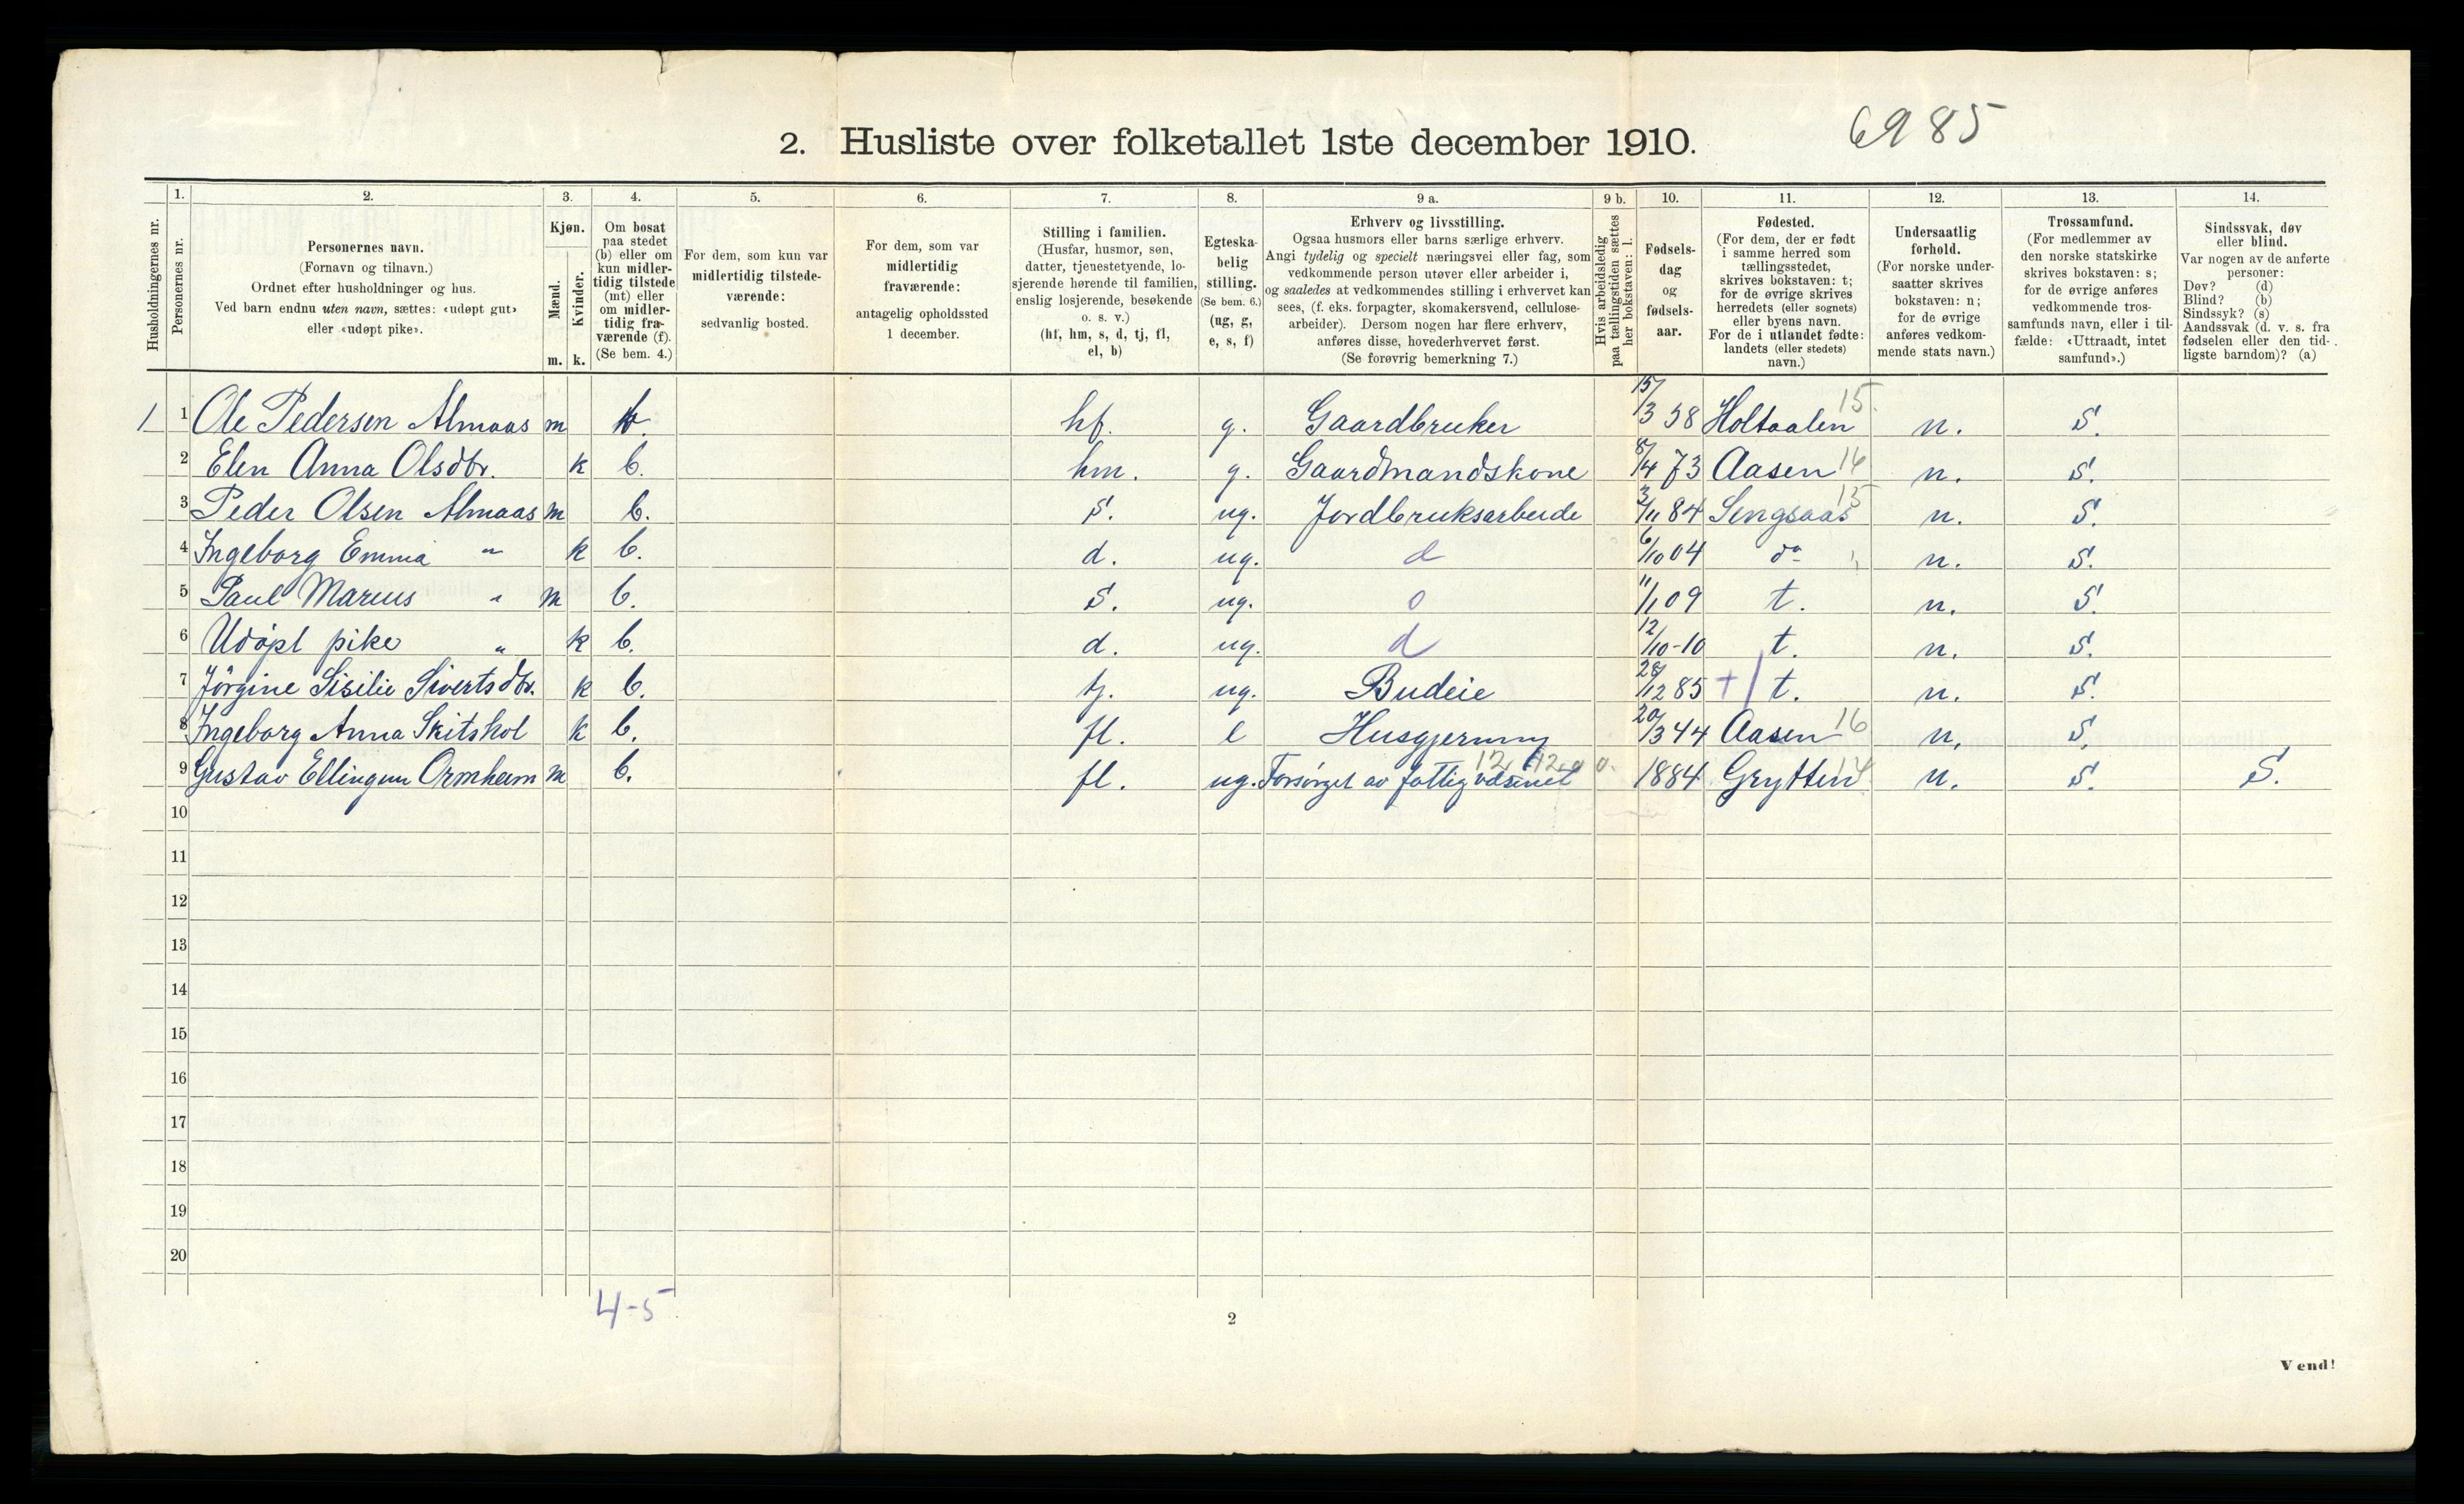 6985
2. Husliste over folketallet 1ste december 1910.
Husholdningernes nr.
1. Personernes nr.
2. Personernes navn.
(Fornavn og tilnavn.)
Ordnet efter husholdninger og hus.
Ved barn endnu uten navn, sættes: «udøpt gut»
eller «udøpt pike».
3. Kjøn.
Mænd. m.
Kvinder. k.
4. Om bosat
paa stedet
(b) eller om
kun midler-
tidig tilstede
(mt) eller
om midler-
tidig fra-
værende (f).
(Se bem. 4.)
5. For dem, som kun var
midlertidig tilstede-
værende:
sedvanlig bosted.
6. For dem, som var
midlertidig
fraværende:
antagelig opholdssted
1 december.
7. Stilling i familien.
(Husfar, husmor, søn,
datter, tjenestetyende, lo-
sjerende hørende til familien,
enslig losjerende, besøkende
o. s. v.)
(hf, hm, s, d, tj, fl,
el, b)
8. Egteska-
belig
stilling.
(Se bem. 6.)
(ug, g,
e, s, f)
9 a. Erhverv og livsstilling.
Ogsaa husmors eller barns særlige erhverv.
Angi tydelig og specielt næringsvei eller fag, som
vedkommende person utøver eller arbeider i,
og saaledes at vedkommendes stilling i erhvervet kan
sees, (f. eks. forpagter, skomakersvend, cellulose-
arbeider). Dersom nogen har flere erhverv,
anføres disse, hovederhvervet først.
(Se forøvrig bemerkning 7.)
9 b. Hvis arbeidsledig
paa tællingstiden sættes
her bokstaven: l.
10. Fødsels-
dag
og
fødsels-
aar.
11. Fødested.
(For dem, der er født
i samme herred som
tællingsstedet,
skrives bokstaven: t;
for de øvrige skrives
herredets (eller sognets)
eller byens navn.
For de i utlandet fødte:
landets (eller stedets)
navn.)
12. Undersaatlig
forhold.
(For norske under-
saatter skrives
bokstaven: n;
for de øvrige
anføres vedkom-
mende stats navn.)
13. Trossamfund.
(For medlemmer av
den norske statskirke
skrives bokstaven: s;
for de øvrige anføres
vedkommende tros-
samfunds navn, eller i til-
fælde: «Uttraadt, intet
samfund».)
14. Sindssvak, døv
eller blind.
Var nogen av de anførte
personer:
Døv? (d)
Blind? (b)
Sindssyk? (s)
Aandssvak (d. v. s. fra
fødselen eller den tid-
ligste barndom)? (a)
1 1 Ole Pedersen Almaas m b. hf. g. Gaardbruker 15/3 58 Holtaalen 15. n. S.
2 Elen Anna Olsdtr. k b. hm. g. Gaardmandskone 8/4 73 Aasen 16 n. S.
3 Peder Olsen Almaas m b. S. ug. Jordbruksarbeide 3/11 84 Singsaas 15 n. S.
4 Ingeborg Emma " k b. d. ug. d 6/10 04 do n. S.
5 Paul Marius " m b. S. ug. o 11/1 09 t. n. S.
6 Udøpt pike " k b. d. ug. d 12/10-10 t. n. S.
7 Jörgine Sisilie Sivertsdtr. k b. tj. ug. Budeie 28/12 85 + t. n. S.
8 Ingeborg Anna Skitshol k b. fl. e Husgjerning 20/3 44 Aasen 16 n. S.
9 Gustav Ellingsen Ormheim m b. fl. ug. Forsørget av fattigvæsenet 1884 Grytten 14 n. S. S.
10
11
12
13
14
15
16
17
18
19
20
4-5
2
Vend!